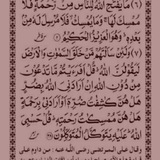 (٦) مَا يَفْتَحِ اللهُ لِلنَّاسِ مِنْ رَحْمَةٍ فَلَا
مُمْسِكَ لَهَا وَمَا يُمْسِكْ فَلَا مُرْسِلَ لَهُ مِنْ
بَعْدِهِ وَهُوَ الْعَزِيزُ الْحَكِيمُ
(٧) وَلَئِنْ سَأَلْتَهُمْ مَنْ خَلَقَ السَّمٰوٰتِ وَالْأَرْضَ
لَيَقُولُنَّ اللهُ قُلْ أَفَرَأَيْتُمْ مَا تَدْعُونَ
مِنْ دُونِ اللهِ إِنْ أَرَادَنِيَ اللهُ بِضُرٍّ
هَلْ هُنَّ كٰشِفٰتُ ضُرِّهِ أَوْ أَرَادَنِي بِرَحْمَةٍ
هَلْ هُنَّ مُمْسِكٰتُ رَحْمَتِهِ قُلْ حَسْبِيَ
اللهُ عَلَيْهِ يَتَوَكَّلُ الْمُتَوَكِّلُونَ
رضي الله عنه من داوم على